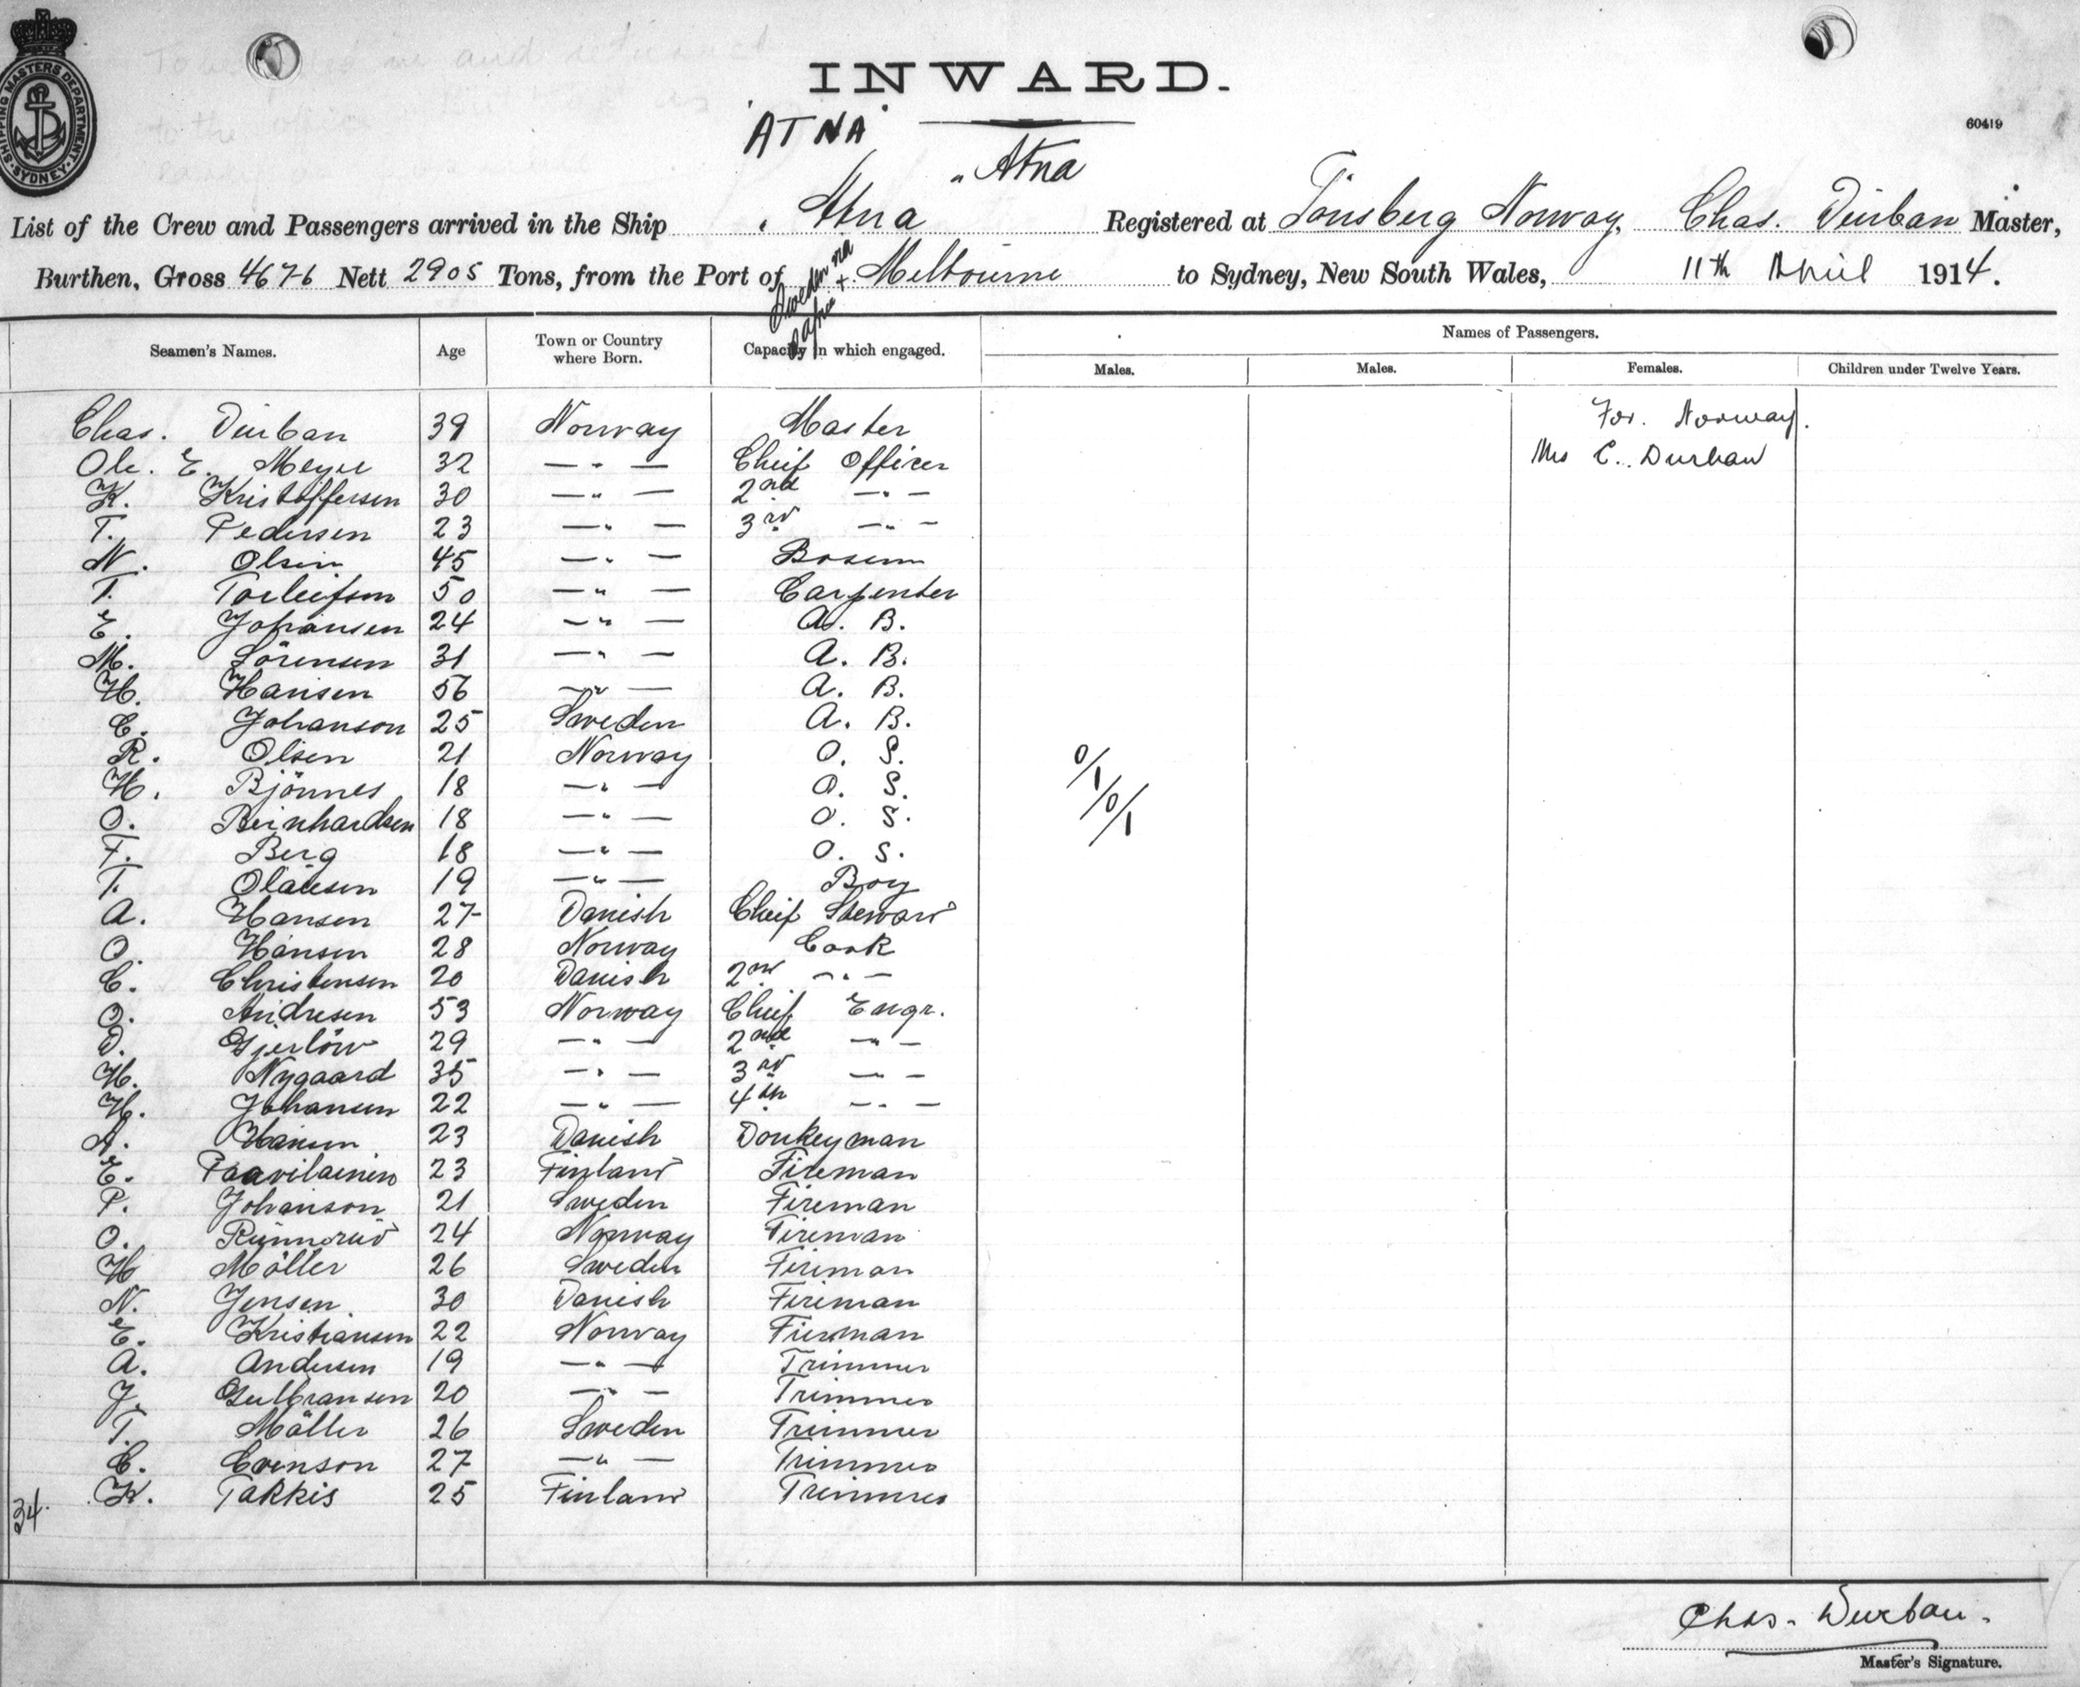 SHIPPING MASTERS DEPARTMENT · SYDNEY
INWARD.
60419
'ATNA'
" Atna
List of the Crew and Passengers arrived in the Ship Atna Registered at Tönsberg Norway. Chas. Durban Master,
Burthen, Gross 4676 Nett 2905 Tons, from the Port of Sweden via + Melbourne to Sydney, New South Wales, 11th April 1914.
Seamen's Names. Age Town or Country where Born. Capacity in which engaged. Names of Passengers.
Males. Males. Females. Children under Twelve Years.
Chas. Durban 39 Norway Master For. Norway.
Ole. E. Meyer 32 — " — Chief Officer Mrs C. Durban
K. Kristoffersen 30 — " — 2nd — " —
T. Pedersen 23 — " — 3rd — " —
N. Olsen 45 — " — Bosun
T. Torleifsen 50 — " — Carpenter
E. Johansen 24 — " — A. B.
M. Sörensen 31 — " — A. B.
H. Hansen 56 — " — A. B.
C. Johanson 25 Sweden A. B.
R. Olsen 21 Norway O. S.
H. Bjönnes 18 — " — O. S. 0/1/0/1
O. Bernhardsen 18 — " — O. S.
F. Berg 18 — " — O. S.
T. Olausen 19 — " — Boy
A. Hansen 27 Danish Chief Steward
O. Hansen 28 Norway Cook
C. Christensen 20 Danish 2nd — " —
O. Andresen 53 Norway Chief Engr.
D. Gjerlöw 29 — " — 2nd — " —
H. Nygaard 35 — " — 3rd — " —
H. Johansen 22 — " — 4th — " —
A. Hansen 23 Danish Donkeyman
E. Paavilainen 23 Finland Fireman
P. Johanson 21 Sweden Fireman
O. 24 Norway Fireman
H Möller 26 Sweden Fireman
N. Jensen 30 Danish Fireman
E. Kristiansen 22 Norway Fireman
A. Andersen 19 — " — Trimmer
J. Gulbransen 20 — " — Trimmer
T. Möller 26 Sweden Trimmer
C. Evenson 27 — " — Trimmer
K. Takkis 25 Finland Trimmer
34.
Chas. Durban.
Master's Signature.